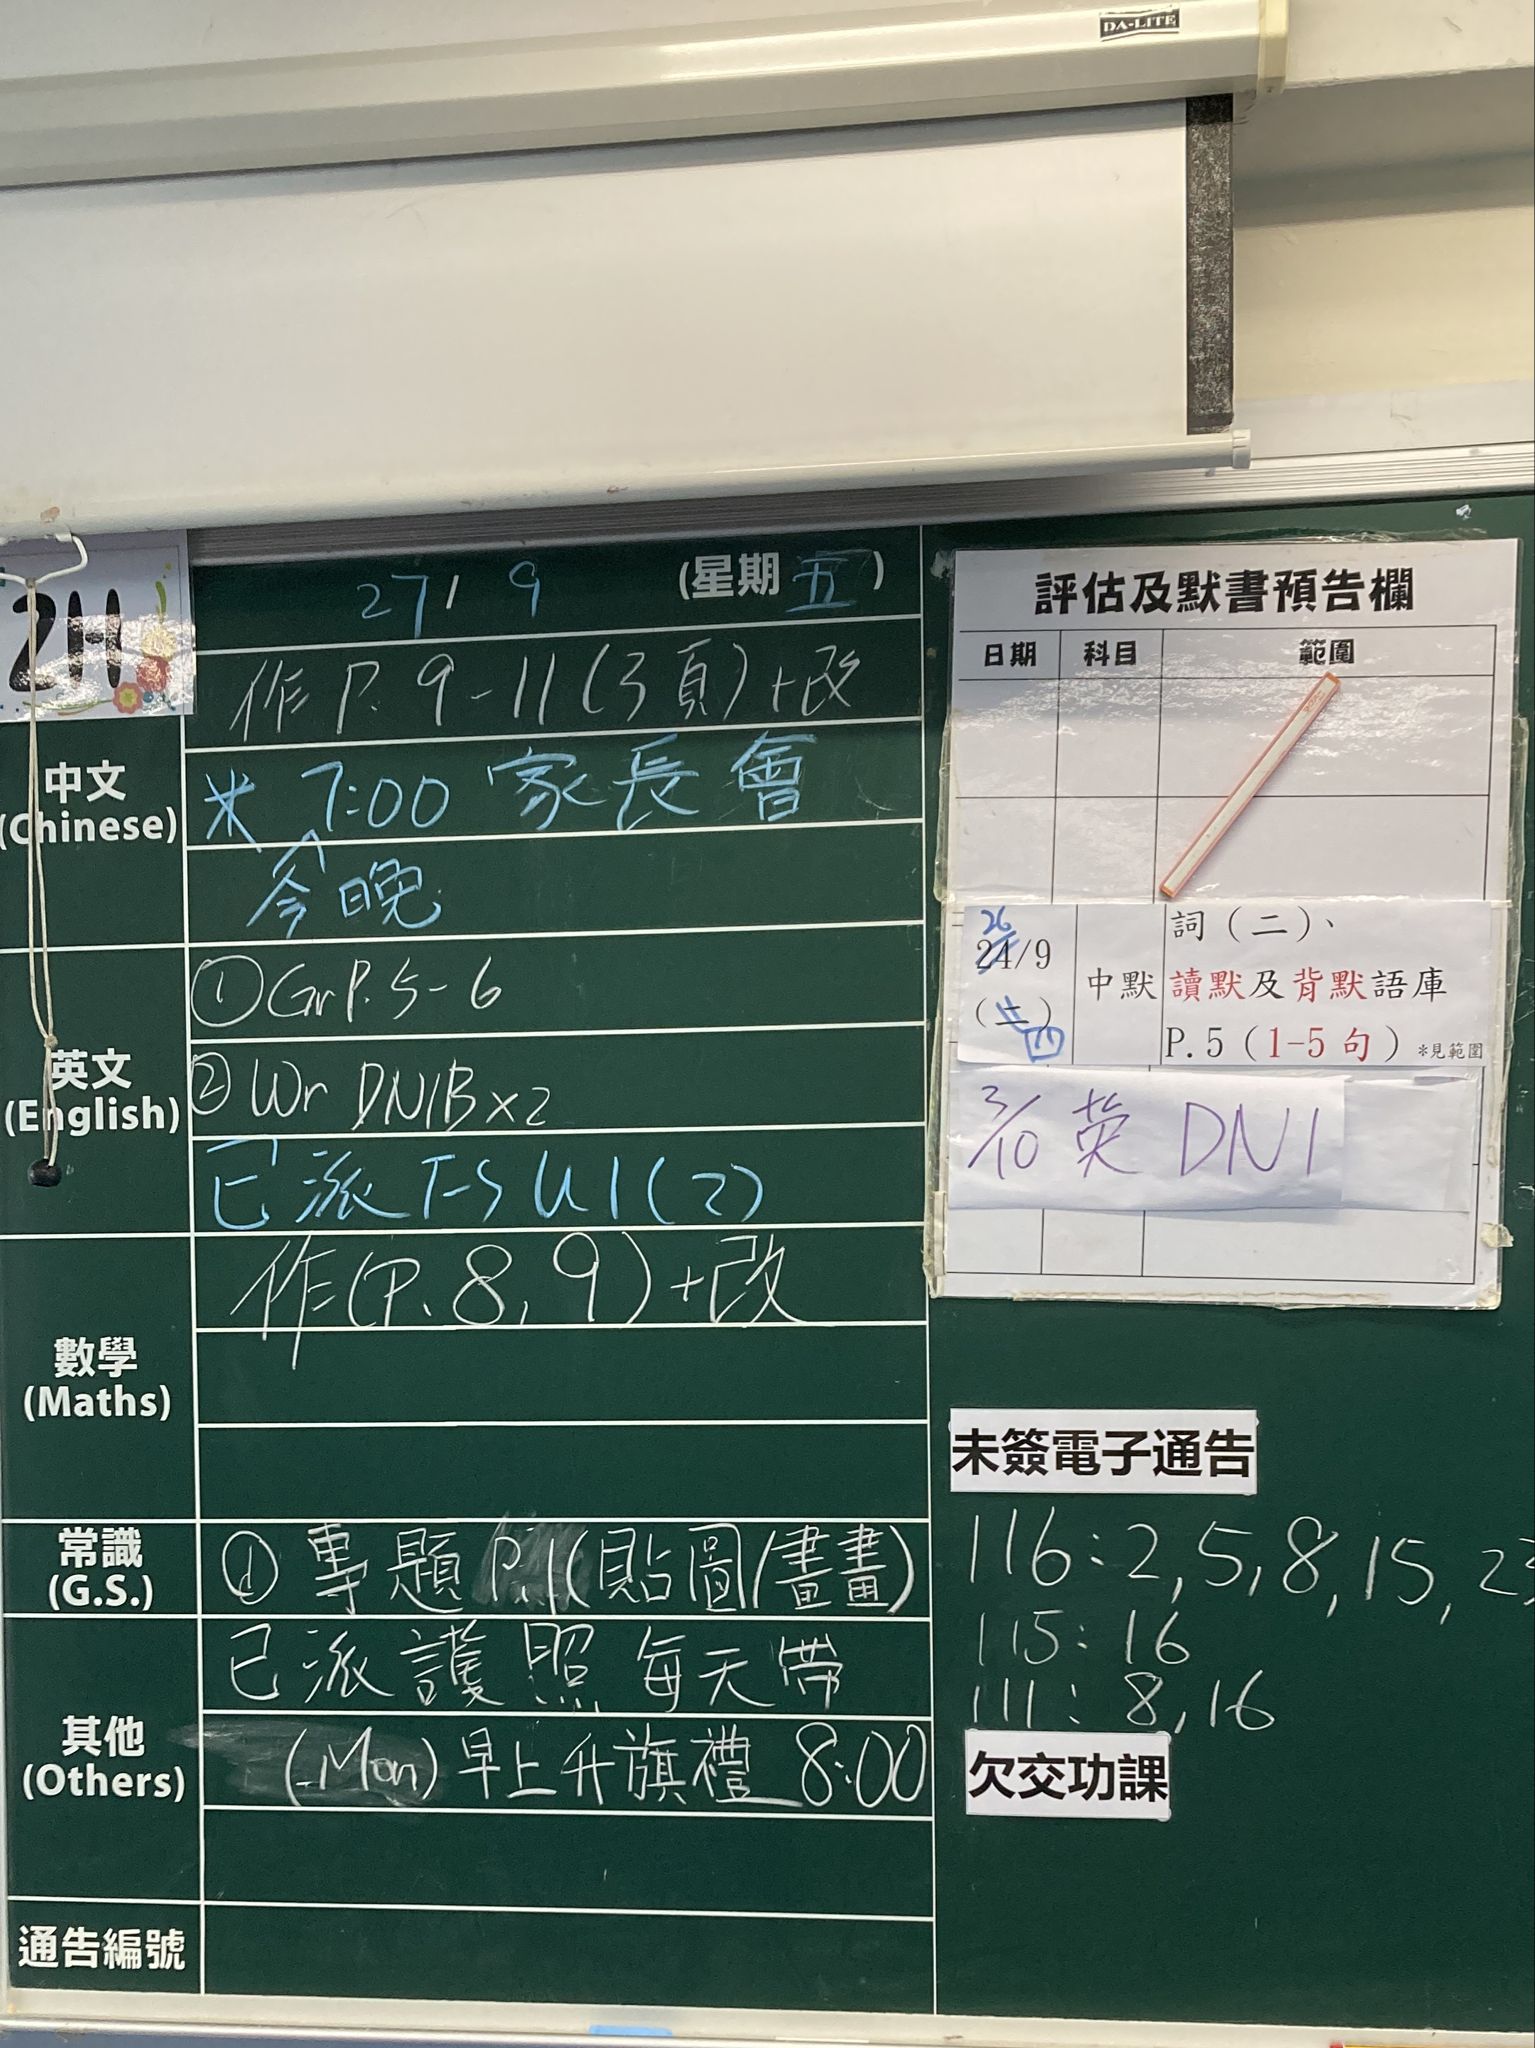 DA-LITE
2H
27/ 9 (星期五)
作 P. 9-11(3頁)+改
中文
(Chinese)
* 7:00 家長會
今晚
① Gr P. 5-6
英文
(English)
② Wr DN1B x2
已派 T-S U1(2)
作(P. 8, 9)+改
數學
(Maths)
常識
(G.S.)
① 專題 P.1(貼圖/畫畫)
其他
(Others)
已派護照 每天帶
(Mon) 早上升旗禮 8:00
通告編號
評估及默書預告欄
日期 科目 範圍
26
24/9
(二)
四
中默
詞（二）、
讀默及背默語庫
P.5（1-5句）*見範圍
3/10 英 DN1
未簽電子通告
116: 2, 5, 8, 15, 23
115: 16
111: 8, 16
欠交功課